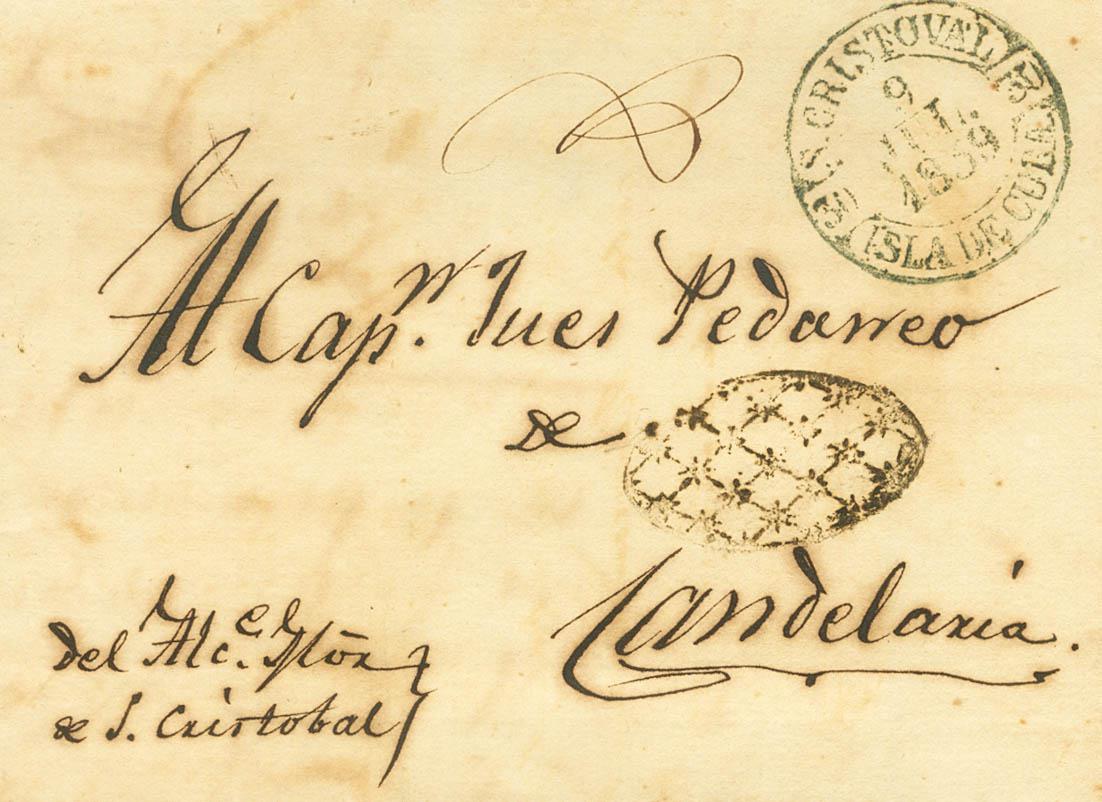 S. CRISTOVAL
9 JUL. 1859
ISLA DE CUBA
Al Capn. Jues Pedaneo
de
Candelaria.
del Alce.
de S. Cristobal